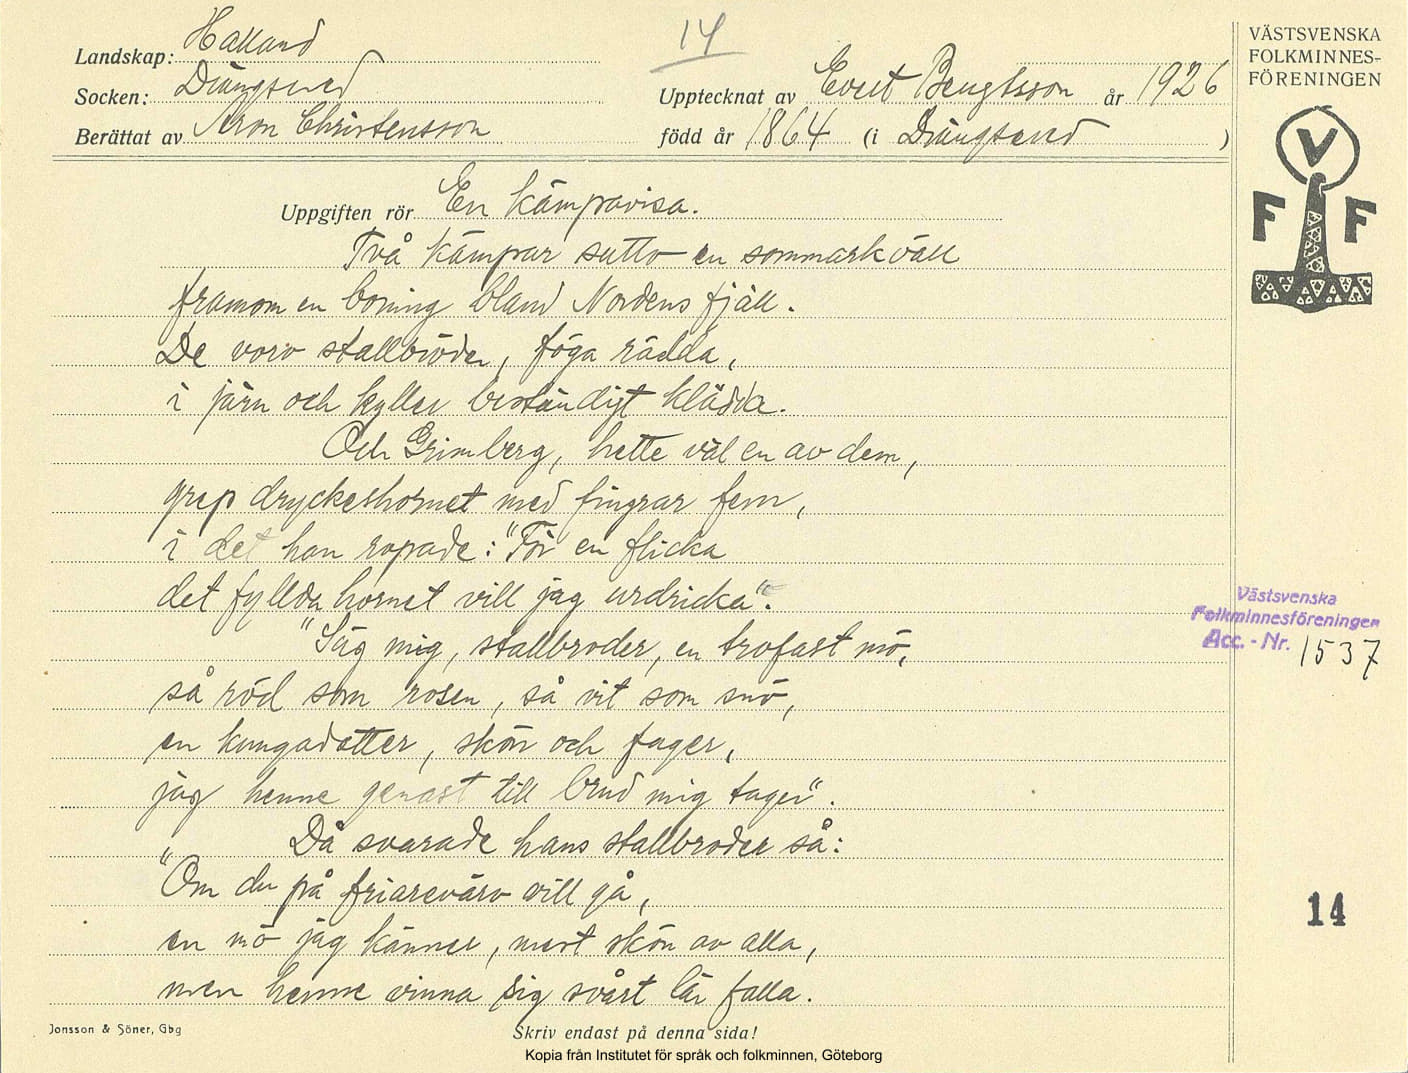 14
Landskap: Halland
Socken: Drängsered
Berättat av Aron Christensson
Upptecknat av Evert Bengtsson år 1926
född år 1864 (i Drängsered )
VÄSTSVENSKA
FOLKMINNES-
FÖRENINGEN
V
F F
Uppgiften rör En kämpavisa.
Två kämpar sutto en sommarkväll
framom en boning bland Nordens fjäll.
De voro stallbröder, föga rädda,
i järn och kyller beständigt klädda.
Och Grimberg, hette väl en av dem,
grep dryckeshornet med fingrar fem,
i det han ropade: "För en flicka
det fyllda hornet vill jag urdricka".
"Säg mig, stallbroder, en trofast mö,
så röd som rosen, så vit som snö,
en kungadotter, skön och fager,
jag henne genast till brud mig tager".
Då svarade hans stallbroder så:
"Om du på friarevärv vill gå,
en mö jag känner, mest skön av alla,
men henne vinna sig svårt lär falla.
Västsvenska
Folkminnesföreningen
Acc. - Nr. 1537
14
Jonsson & Söner, Gbg
Skriv endast på denna sida!
Kopia från Institutet för språk och folkminnen, Göteborg